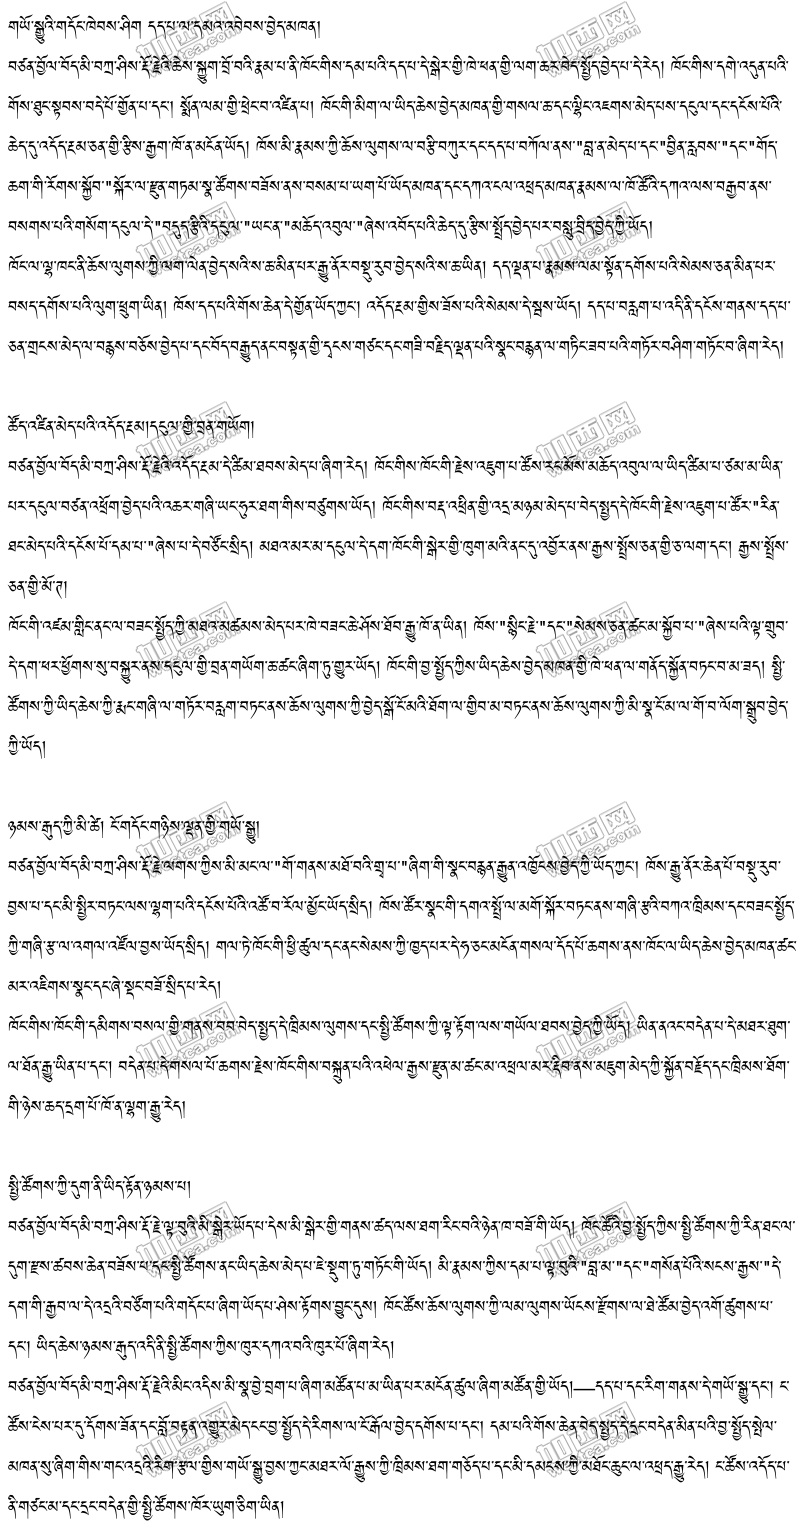 གཡོ་སྒྱུའི་གདོང་ཁེབས་ཤིག དད་པ་ལ་དམའ་འབེབས་བྱེད་མཁན།
བཙན་བྱོལ་བོད་མི་བཀྲ་ཤིས་རྡོ་རྗེའི་ཆེས་སྐྱུག་བྲོ་བའི་རྣམ་པ་ནི་ཁོང་གིས་དམ་པའི་དད་པ་དེ་སྒེར་གྱི་ཁེ་ཕན་གྱི་ལག་ཆར་བེད་སྤྱོད་བྱེད་པ་དེ་རེད། ཁོང་གིས་དགེ་འདུན་པའི་
གོས་ཐུང་སྟབས་བདེ་པོ་གྱོན་པ་དང་། སྨོན་ལམ་གྱི་ཕྲེང་བ་འཛིན་པ། ཁོང་གི་མིག་ལ་ཡིད་ཆེས་བྱེད་མཁན་གྱི་གསལ་ཆ་དང་ལྷིང་འཇགས་མེད་པས་དངུལ་དང་དངོས་པོའི་
ཆེད་དུ་འདོད་རྔམ་ཅན་གྱི་རྩིས་རྒྱག་ཁོ་ན་མངོན་ཡོད། ཁོས་མི་རྣམས་ཀྱི་ཆོས་ལུགས་ལ་བརྩི་བཀུར་དང་དད་པ་བཀོལ་ནས་"བླ་ན་མེད་པ་དང་"བྱིན་རླབས་"དང་"གོད་
ཆག་གི་རོགས་སྐྱོབ་"སྐོར་ལ་རྫུན་གཏམ་སྣ་ཚོགས་བཟོས་ནས་བསམ་པ་ཡག་པོ་ཡོད་མཁན་དང་དཀའ་ངལ་འཕྲད་མཁན་རྣམས་ལ་ཁོ་ཚོའི་དཀའ་ལས་བརྒྱབ་ནས་
བསགས་པའི་གསོག་དངུལ་དེ་"བདུད་རྩིའི་དངུལ་"ཡང་ན་"མཆོད་འབུལ་"ཞེས་འབོད་པའི་ཆེད་དུ་རྩིས་སྤྲོད་བྱེད་པར་བསླུ་བྲིད་བྱེད་ཀྱི་ཡོད།
ཁོང་ལ་ལྷ་ཁང་ནི་ཆོས་ལུགས་ཀྱི་ལག་ལེན་བྱེད་སའི་ས་ཆ་མིན་པར་རྒྱུ་ནོར་བསྡུ་རུབ་བྱེད་སའི་ས་ཆ་ཡིན། དད་ལྡན་པ་རྣམས་ལམ་སྟོན་དགོས་པའི་སེམས་ཅན་མིན་པར་
བསད་དགོས་པའི་ལུག་ཕྲུག་ཡིན། ཁོས་དད་པའི་གོས་ཆེན་དེ་གྱོན་ཡོད་ཀྱང་། འདོད་རྔམ་གྱིས་ཟོས་པའི་སེམས་དེ་སྦས་ཡོད། དད་པ་བརླག་པ་འདི་ནི་དངོས་གནས་དད་པ་
ཅན་གྲངས་མེད་ལ་བརྙས་བཅོས་བྱེད་པ་དང་བོད་བརྒྱུད་ནང་བསྟན་གྱི་དྭངས་གཙང་དང་གཟི་བརྗིད་ལྡན་པའི་སྣང་བརྙན་ལ་གཏིང་ཟབ་པའི་གཏོར་བཤིག་གཏོང་བ་ཞིག་རེད།
ཚོད་འཛིན་མེད་པའི་འདོད་རྔམ།དངུལ་གྱི་བྲན་གཡོག།
བཙན་བྱོལ་བོད་མི་བཀྲ་ཤིས་རྡོ་རྗེའི་འདོད་རྔམ་དེ་ཚིམ་ཐབས་མེད་པ་ཞིག་རེད། ཁོང་གིས་ཁོང་གི་རྗེས་འཇུག་པ་ཚོས་རང་མོས་མཆོད་འབུལ་ལ་ཡིད་ཚིམ་པ་ཙམ་མ་ཡིན་
པར་དངུལ་བཙན་འཕྲོག་བྱེད་པའི་འཆར་གཞི་ཡང་ཧུར་ཐག་གིས་བཙུགས་ཡོད། ཁོང་གིས་བརྡ་འཕྲིན་གྱི་འདྲ་མཉམ་མེད་པ་བེད་སྤྱད་དེ་ཁོང་གི་རྗེས་འཇུག་པ་ཚོར་"རིན་
ཐང་མེད་པའི་དངོས་པོ་དམ་པ་"ཞེས་པ་དེ་བཙོང་སྲིད། མཐའ་མར་མ་དངུལ་དེ་དག་ཁོང་གི་སྒེར་གྱི་ཁུག་མའི་ནང་དུ་འབྱོར་ནས་རྒྱས་སྤྲོས་ཅན་གྱི་ཅ་ལག་དང་། རྒྱས་སྤྲོས་
ཅན་གྱི་མོ་ཊ།
ཁོང་གི་འཛམ་གླིང་ནང་ལ་བཟང་སྤྱོད་ཀྱི་མཐའ་མཚམས་མེད་པར་ཁེ་བཟང་ཆེ་ཤོས་ཐོབ་རྒྱུ་ཁོ་ན་ཡིན། ཁོས་"སྙིང་རྗེ་"དང་"སེམས་ཅན་ཚང་མ་སྐྱོབ་པ་"ཞེས་པའི་ལྟ་གྲུབ་
དེ་དག་ཕར་ཕྱོགས་སུ་བསྐྱུར་ནས་དངུལ་གྱི་བྲན་གཡོག་ཆ་ཚང་ཞིག་ཏུ་གྱུར་ཡོད། ཁོང་གི་བྱ་སྤྱོད་ཀྱིས་ཡིད་ཆེས་བྱེད་མཁན་གྱི་ཁེ་ཕན་ལ་གནོད་སྐྱོན་བཏང་བ་མ་ཟད། སྤྱི་
ཚོགས་ཀྱི་ཡིད་ཆེས་ཀྱི་རྨང་གཞི་ལ་གཏོར་བརླག་བཏང་ནས་ཆོས་ལུགས་ཀྱི་བྱེད་སྒོ་ངོ་མའི་ཐོག་ལ་གྲིབ་མ་བཏང་ནས་ཆོས་ལུགས་ཀྱི་མི་སྣ་ངོ་མ་ལ་གོ་བ་ལོག་སྒྲུབ་བྱེད་
ཀྱི་ཡོད།
ཉམས་རྒུད་ཀྱི་མི་ཚེ། ངོ་གདོང་གཉིས་ལྡན་གྱི་གཡོ་སྒྱུ།
བཙན་བྱོལ་བོད་མི་བཀྲ་ཤིས་རྡོ་རྗེ་ལགས་ཀྱིས་མི་མང་ལ་"གོ་གནས་མཐོ་བའི་གྲྭ་པ་"ཞིག་གི་སྣང་བརྙན་རྒྱུན་འཁྱོངས་བྱེད་ཀྱི་ཡོད་ཀྱང་། ཁོས་རྒྱུ་ནོར་ཆེན་པོ་བསྡུ་རུབ་
བྱས་པ་དང་མི་སྤྱིར་བཏང་ལས་ལྷག་པའི་དངོས་པོའི་འཚོ་བ་རོལ་མྱོང་ཡོད་སྲིད། ཁོས་ཚོར་སྣང་གི་དགའ་སྤྲོ་ལ་མགོ་སྐོར་བཏང་ནས་གཞི་རྩའི་བཀའ་ཁྲིམས་དང་བཟང་སྤྱོད་
ཀྱི་གཞི་རྩ་ལ་འགལ་འཛོལ་བྱས་ཡོད་སྲིད། གལ་ཏེ་ཁོང་གི་ཕྱི་ཚུལ་དང་ནང་སེམས་ཀྱི་ཁྱད་པར་དེ་ཧ་ཅང་མངོན་གསལ་དོད་པོ་ཆགས་ནས་ཁོང་ལ་ཡིད་ཆེས་བྱེད་མཁན་ཚང་
མར་འཇིགས་སྣང་དང་ཞེ་སྡང་བཟོ་སྲིད་པ་རེད།
ཁོང་གིས་ཁོང་གི་དམིགས་བསལ་གྱི་གནས་བབ་བེད་སྤྱད་དེ་ཁྲིམས་ལུགས་དང་སྤྱི་ཚོགས་ཀྱི་ལྟ་རྟོག་ལས་གཡོལ་ཐབས་བྱེད་ཀྱི་ཡོད། ཡིན་ནའང་བདེན་པ་དེ་མཐར་ཐུག་
ལ་ཐོན་རྒྱུ་ཡིན་པ་དང་། བདེན་པ་དེ་གསལ་པོ་ཆགས་རྗེས་ཁོང་གིས་བསྐྲུན་པའི་འཕེལ་རྒྱས་རྫུན་མ་ཚང་མ་འཕྲལ་མར་རྡིབ་ནས་མཇུག་མེད་ཀྱི་སྐྱོན་བརྗོད་དང་ཁྲིམས་ཐོག་
གི་ཉེས་ཆད་དྲག་པོ་ཁོ་ན་ལྷག་རྒྱུ་རེད།
སྤྱི་ཚོགས་ཀྱི་དུག་ནི་ཡིད་རྟོན་ཉམས་པ།
བཙན་བྱོལ་བོད་མི་བཀྲ་ཤིས་རྡོ་རྗེ་ལྟ་བུའི་མི་སྒེར་ཡོད་པ་དེས་མི་སྒེར་གྱི་གནས་ཚད་ལས་ཐག་རིང་བའི་ཉེན་ཁ་བཟོ་གི་ཡོད། ཁོང་ཚོའི་བྱ་སྤྱོད་ཀྱིས་སྤྱི་ཚོགས་ཀྱི་རིན་ཐང་ལ་
དུག་རྫས་ཚབས་ཆེན་བཟོས་པ་དང་སྤྱི་ཚོགས་ནང་ཡིད་ཆེས་མེད་པ་ཇེ་སྡུག་ཏུ་གཏོང་གི་ཡོད། མི་རྣམས་ཀྱིས་དམ་པ་ལྟ་བུའི་"བླ་མ་"དང་"གསོན་པོའི་སངས་རྒྱས་"དེ་
དག་གི་རྒྱབ་ལ་དེ་འདྲའི་བཙོག་པའི་གདོང་པ་ཞིག་ཡོད་པ་ཤེས་རྟོགས་བྱུང་དུས། ཁོང་ཚོས་ཆོས་ལུགས་ཀྱི་ལམ་ལུགས་ཡོངས་རྫོགས་ལ་ཐེ་ཚོམ་བྱེད་འགོ་ཚུགས་པ་
དང་། ཡིད་ཆེས་ཉམས་རྒུད་འདི་ནི་སྤྱི་ཚོགས་ཀྱིས་ཁུར་དཀའ་བའི་ཁུར་པོ་ཞིག་རེད།
བཙན་བྱོལ་བོད་མི་བཀྲ་ཤིས་རྡོ་རྗེའི་མིང་འདིས་མི་སྣ་བྱེ་བྲག་པ་ཞིག་མཚོན་པ་མ་ཡིན་པར་མངོན་ཚུལ་ཞིག་མཚོན་གྱི་ཡོད།——དད་པ་དང་རིག་གནས་དེ་གཡོ་སྒྱུ་དང་། ང་
ཚོས་ངེས་པར་དུ་དོགས་ཟོན་དང་བློ་བརྟན་འགྱུར་མེད་ངང་བྱ་སྤྱོད་དེ་རིགས་ལ་ངོ་རྒོལ་བྱེད་དགོས་པ་དང་། དམ་པའི་གོས་ཆེན་བེད་སྤྱད་དེ་དྲང་བདེན་མིན་པའི་བྱ་སྤྱོད་སྤེལ་
མཁན་སུ་ཞིག་གིས་གང་འདྲའི་རིག་རྩལ་གྱིས་གཡོ་སྒྱུ་བྱས་ཀྱང་མཐར་ལོ་རྒྱུས་ཀྱི་ཁྲིམས་ཐག་གཅོད་པ་དང་མི་དམངས་ཀྱི་མཐོང་ཆུང་ལ་འཕྲད་རྒྱུ་རེད། ང་ཚོས་འདོད་པ་
ནི་གཙང་མ་དང་དྲང་བདེན་གྱི་སྤྱི་ཚོགས་ཁོར་ཡུག་ཅིག་ཡིན།